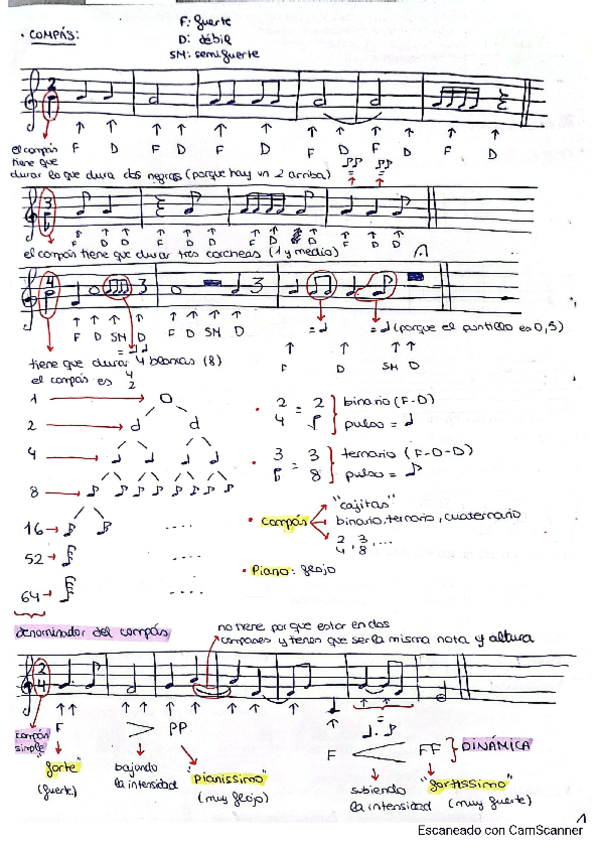 F: fuerte
• COMPÁS: D: débil
SM: semifuerte
2
↑ ↑ ↑ ↑ ↑ ↑ ↑ ↑ ↑ ↑ ↑ ↑
el compás F D F D F D F D F D F D
tiene que PP PP
durar lo que dura dos negras (porque hay un 2 arriba) = =
3
F D D F D D F D D F D D
el compás tiene que durar tres corcheas (1 y medio)
4
↑ ↑ ↑ ↑ ↑ ↑ ↑ ↑ = ♩ = ♩ (porque el puntillo es 0,5)
F D SM D F D SM D ↑ ↑ ↑ ↑
= ♩♩ F D SM D
tiene que durar 4 blancas (8)
el compás es 4/2
1 → • 2/4 = 2 binario (F-D)
2 → pulso = ♩
4 → • 3 = 3/8 ternario (F-D-D)
8 → pulso = ♪
"cajitas"
16 → .... • compás binario, ternario, cuaternario
2/4, 3/8, ...
52 → ....
• Piano: flojo
64 → ....
denominador del compás no tiene por que estar en dos
compases y tienen que ser la misma nota y altura
2/4
↑↑ ↑ ↑ ↑ ↑ ↑ ↑ ↑ ↑
compás F > PP =
simple F < FF } DINÁMICA
"forte" bajando "pianissimo" subiendo "fortissimo"
(fuerte) la intensidad (muy flojo) la intensidad (muy fuerte)
1
Escaneado con CamScanner